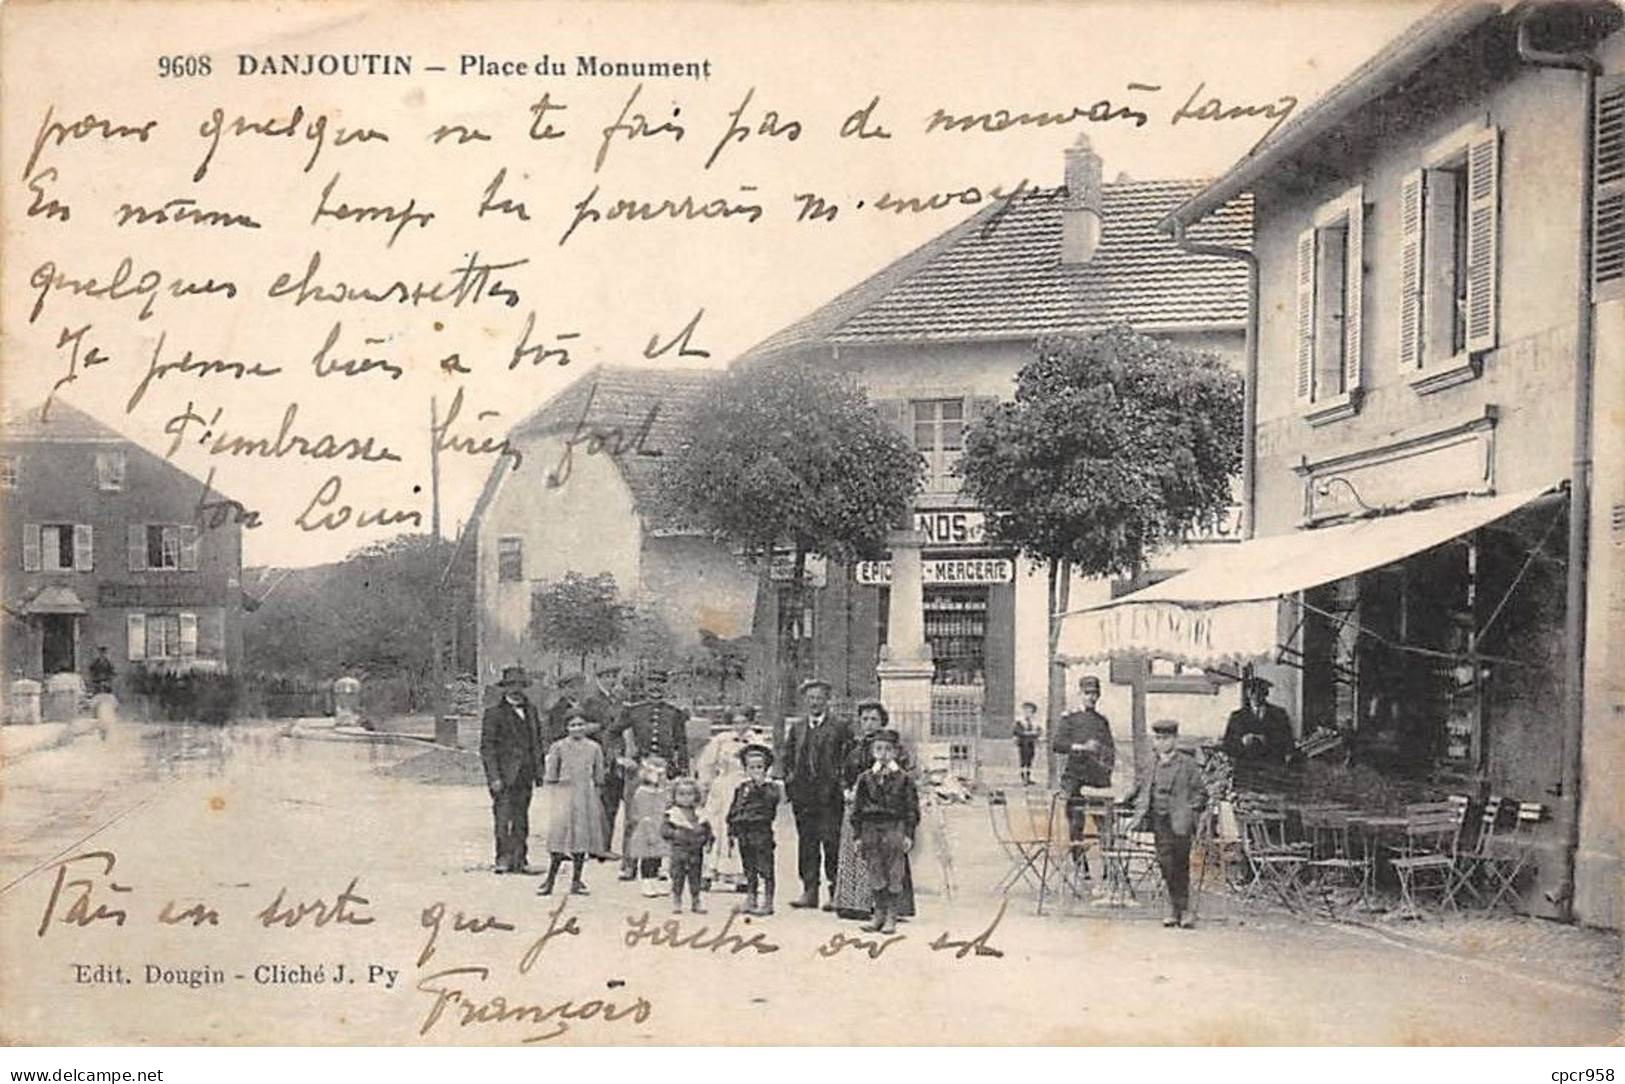 9608 DANJOUTIN — Place du Monument
pour quelque ne te fais pas de mauvais sang
En même temps tu pourrais m'envoyer
quelques chaussettes
Je pense bien a toi et
t'embrasse bien fort
ton Louis
NDS
EPIC - MERCERIE
Fais en sorte que je sache ou est
François
Edit. Dougin - Cliché J. Py
www.delcampe.net
cpcr958